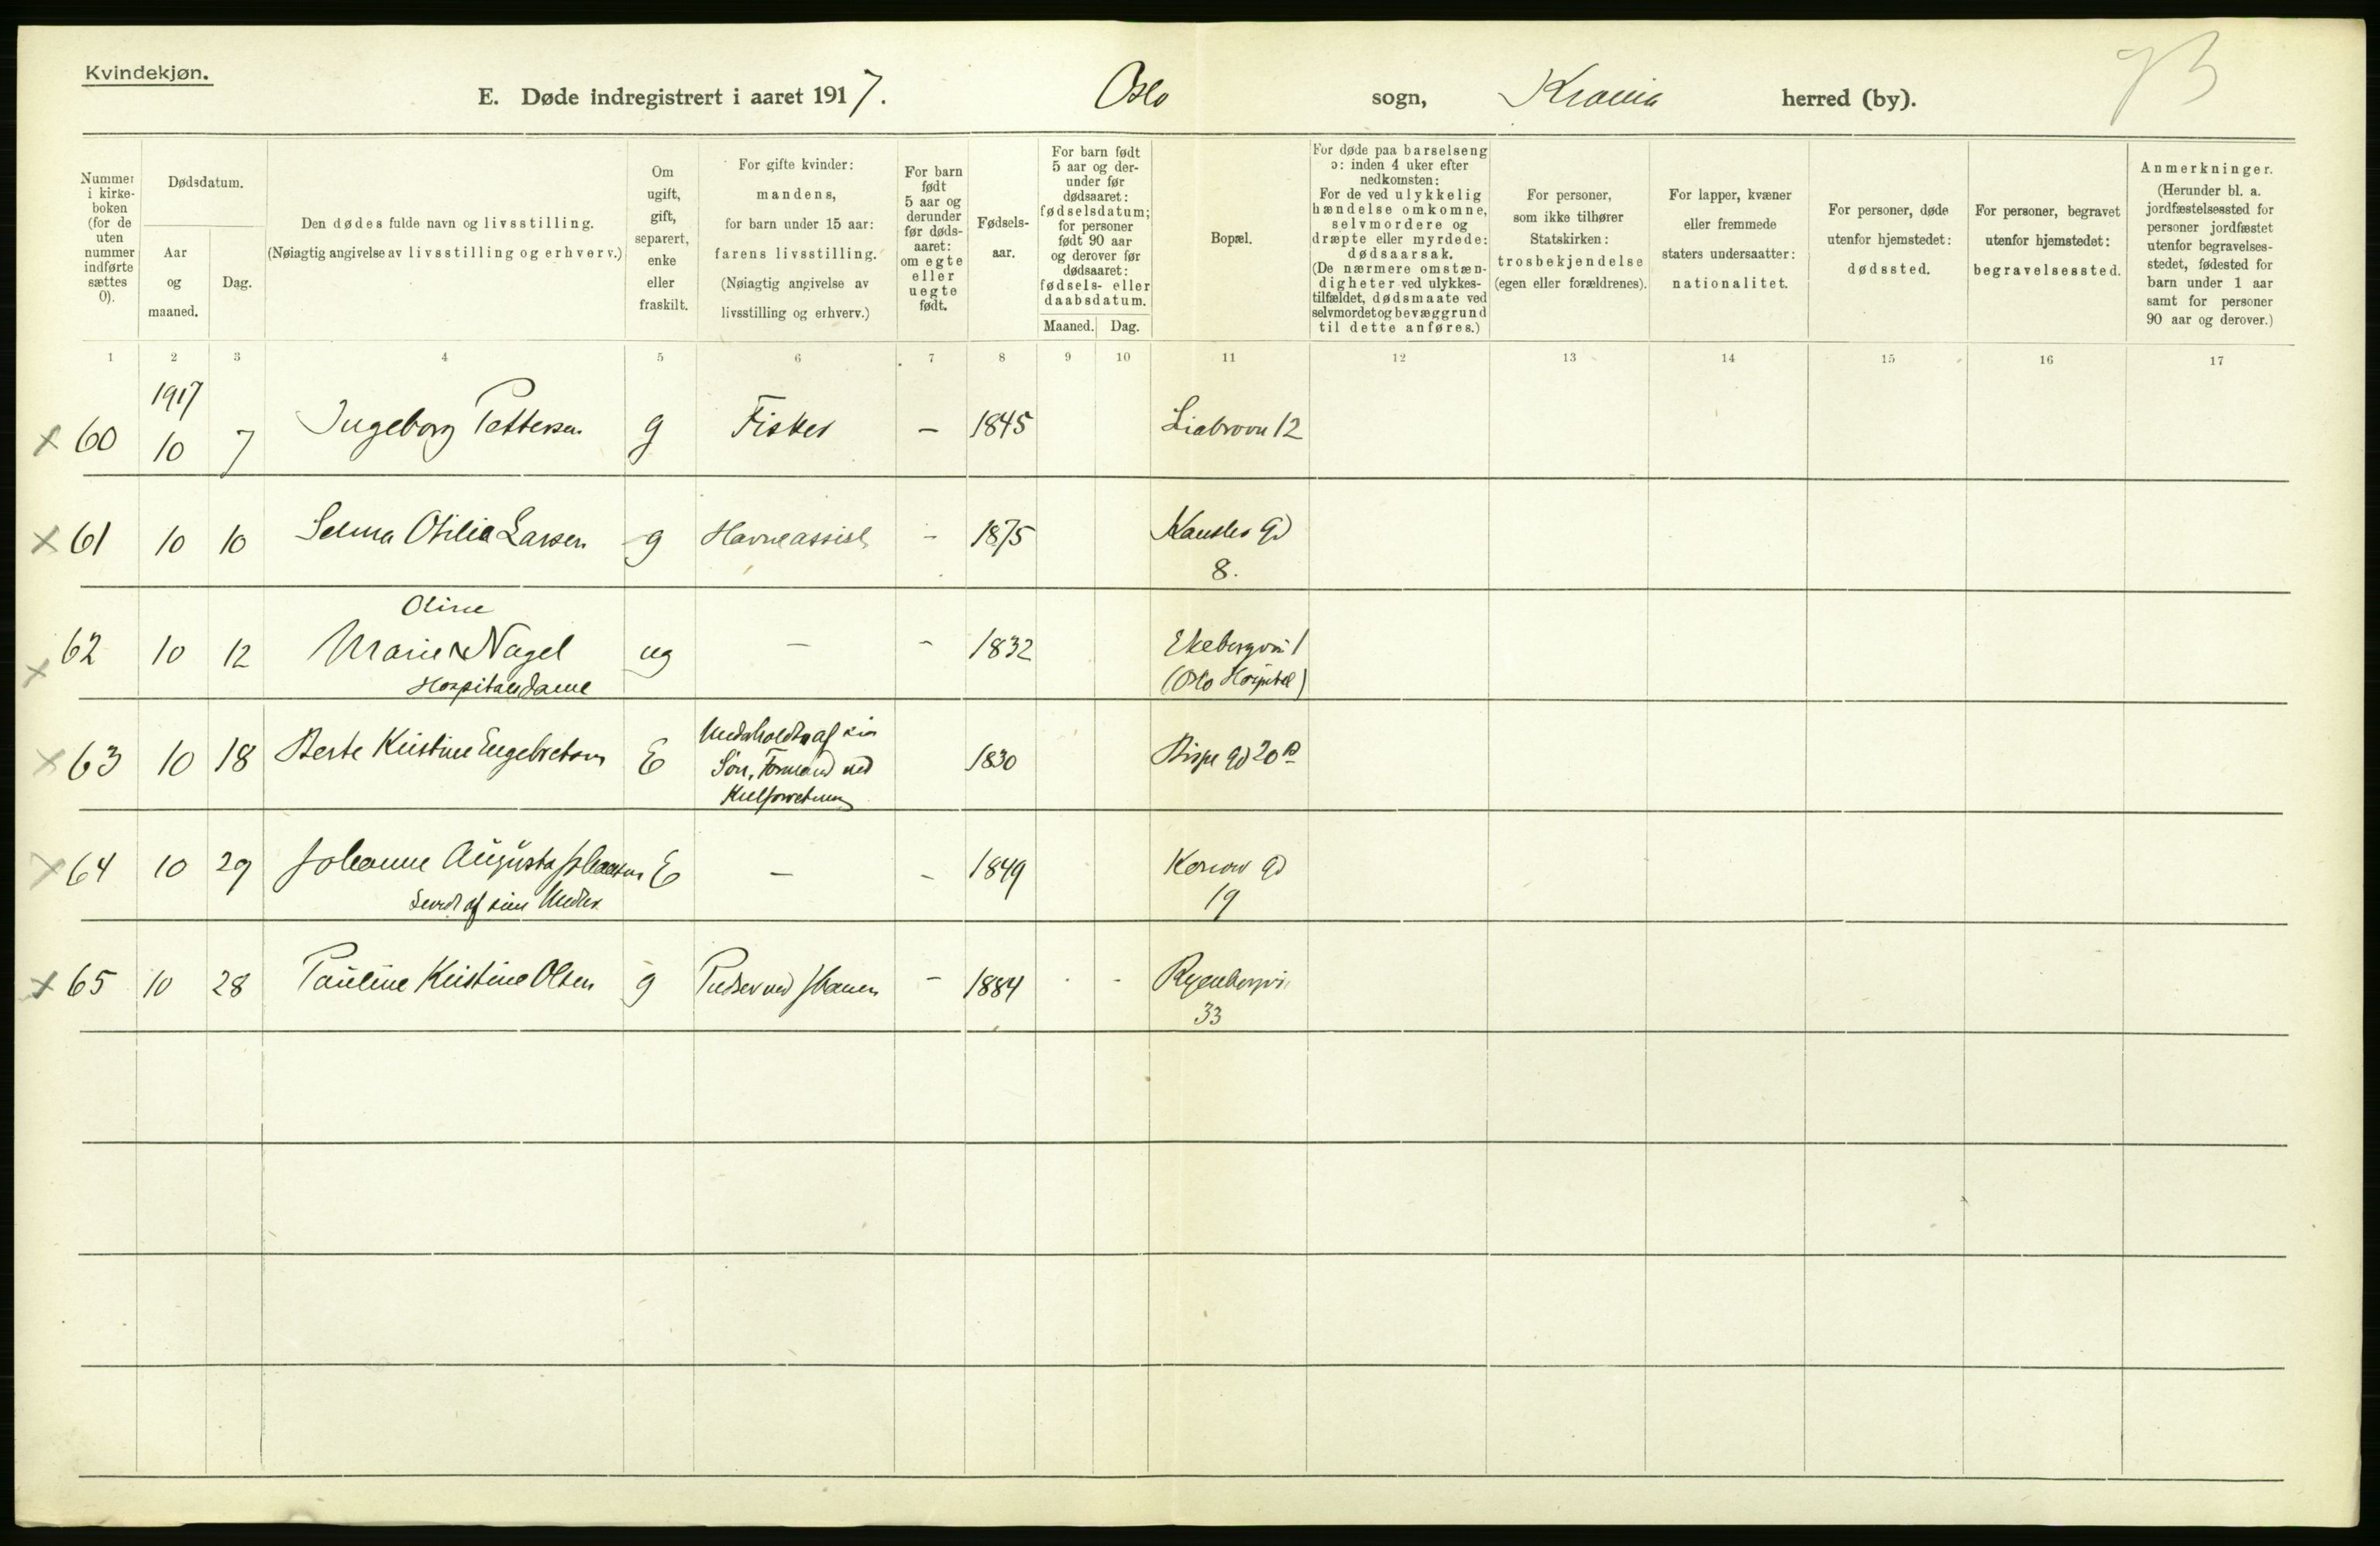 Kvindekjøn.
E. Døde indregistrert i aaret 1917. Oslo sogn, Krania herred (by).
Nummer i kirkeboken (for de uten nummer indførte sættes 0).
Dødsdatum.
Aar og maaned.
Dag.
Den dødes fulde navn og livsstilling.
(Nøiagtig angivelse av livsstilling og erhverv.)
Om ugift, gift, separert, enke eller fraskilt.
For gifte kvinder: mandens, for barn under 15 aar: farens livsstilling. (Nøiagtig angivelse av livsstilling og erhverv.)
For barn født 5 aar og derunder før dødsaaret: om egte eller uegte født.
Fødselsaar.
For barn født 5 aar og derunder før dødsaaret: fødselsdatum; for personer født 90 aar og derover før dødsaaret: fødsels- eller daabsdatum.
Maaned. Dag.
Bopæl.
For døde paa barselseng ɔ: inden 4 uker efter nedkomsten: For de ved ulykkelig hændelse omkomne, selvmordere og dræpte eller myrdede: dødsaarsak. (De nærmere omstændigheter ved ulykkestilfældet, dødsmaate ved selvmordet og bevæggrund til dette anføres.)
For personer, som ikke tilhører Statskirken: trosbekjendelse (egen eller forældrenes).
For lapper, kvæner eller fremmede staters undersaatter: nationalitet.
For personer, døde utenfor hjemstedet: dødssted.
For personer, begravet utenfor hjemstedet: begravelsessted.
Anmerkninger. (Herunder bl. a. jordfæstelsessted for personer jordfæstet utenfor begravelsesstedet, fødested for barn under 1 aar samt for personer 90 aar og derover.)
1 2 3 4 5 6 7 8 9 10 11 12 13 14 15 16 17
1917
x 60 10 7 Ingeborg Pettersen g Fisker – 1845 Liabrovn 12
x 61 10 10 Selma Otilie Larsen g Havneassist – 1875 Kansler gd
8.
Oline
x 62 10 12 Marie Nagel ug – – 1832 Ekebergvei 1
Hospitalsdame (Oslo Hospital)
x 63 10 18 Berte Kristine Engebretsen E Underholdt af sin 1830 Bispe gd 20 B
Søn, Formand ved
x 64 10 29 Johanne Augusta E – – 1849 gd
af sine 19
x 65 10 28 Pauline Kristine Olsen g Pudser ved Jbanen – 1884 - - Ryenbergvei
33